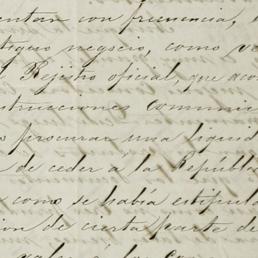 entan con frecuencia, e
tiguo negocio, como ve
l Rejistro oficial, que aco
strucciones communic
o procurar una liquid
n de ceder á la Repúbla
como se había estipula
ion de cierta parte de